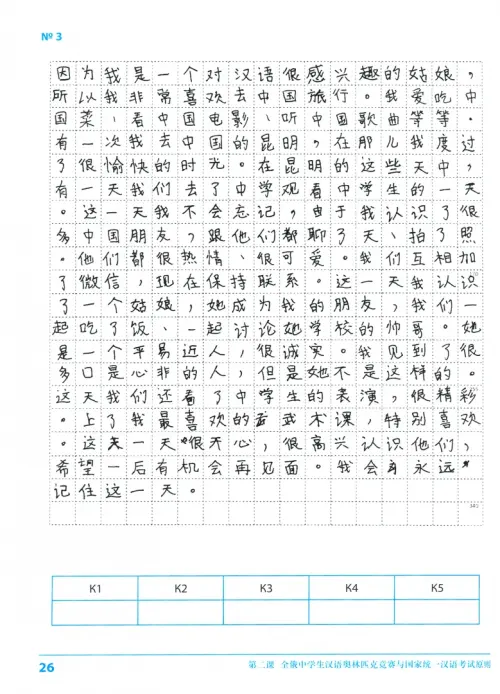 № 3
因为我是一个对汉语很感兴趣的姑娘，
所以我非常喜欢去中国旅行。我爱吃中
国菜、看中国电影、听中国歌曲等等。
有一次我去中国的昆明，在那儿我度过
了很愉快的时光。在昆明的这些天中，
有一天我们去了中学观看中学生的一天
。这一天我不会忘记，由于我认识了很
多中国朋友，跟他们都聊了天、拍了照
。他们都很热情、很可爱。我们互相加
了微信，现在保持联系。这一天我认识
了一个姑娘，她成为我的朋友，我们一
起吃了饭、一起讨论她学校的帅哥。她
是一个平易近人，很诚实。我见到了很
多口是心非的人，但是她不是这样的。
这天我们还看了中学生的表演，很精彩
。上了我最喜欢的武术课，特别喜欢
。这一天很开心，很高兴认识他们，
希望一后有机会再见面。我会永远
记住这一天。
K1 K2 K3 K4 K5
26 第二课 全俄中学生汉语奥林匹克竞赛与国家统一汉语考试原则